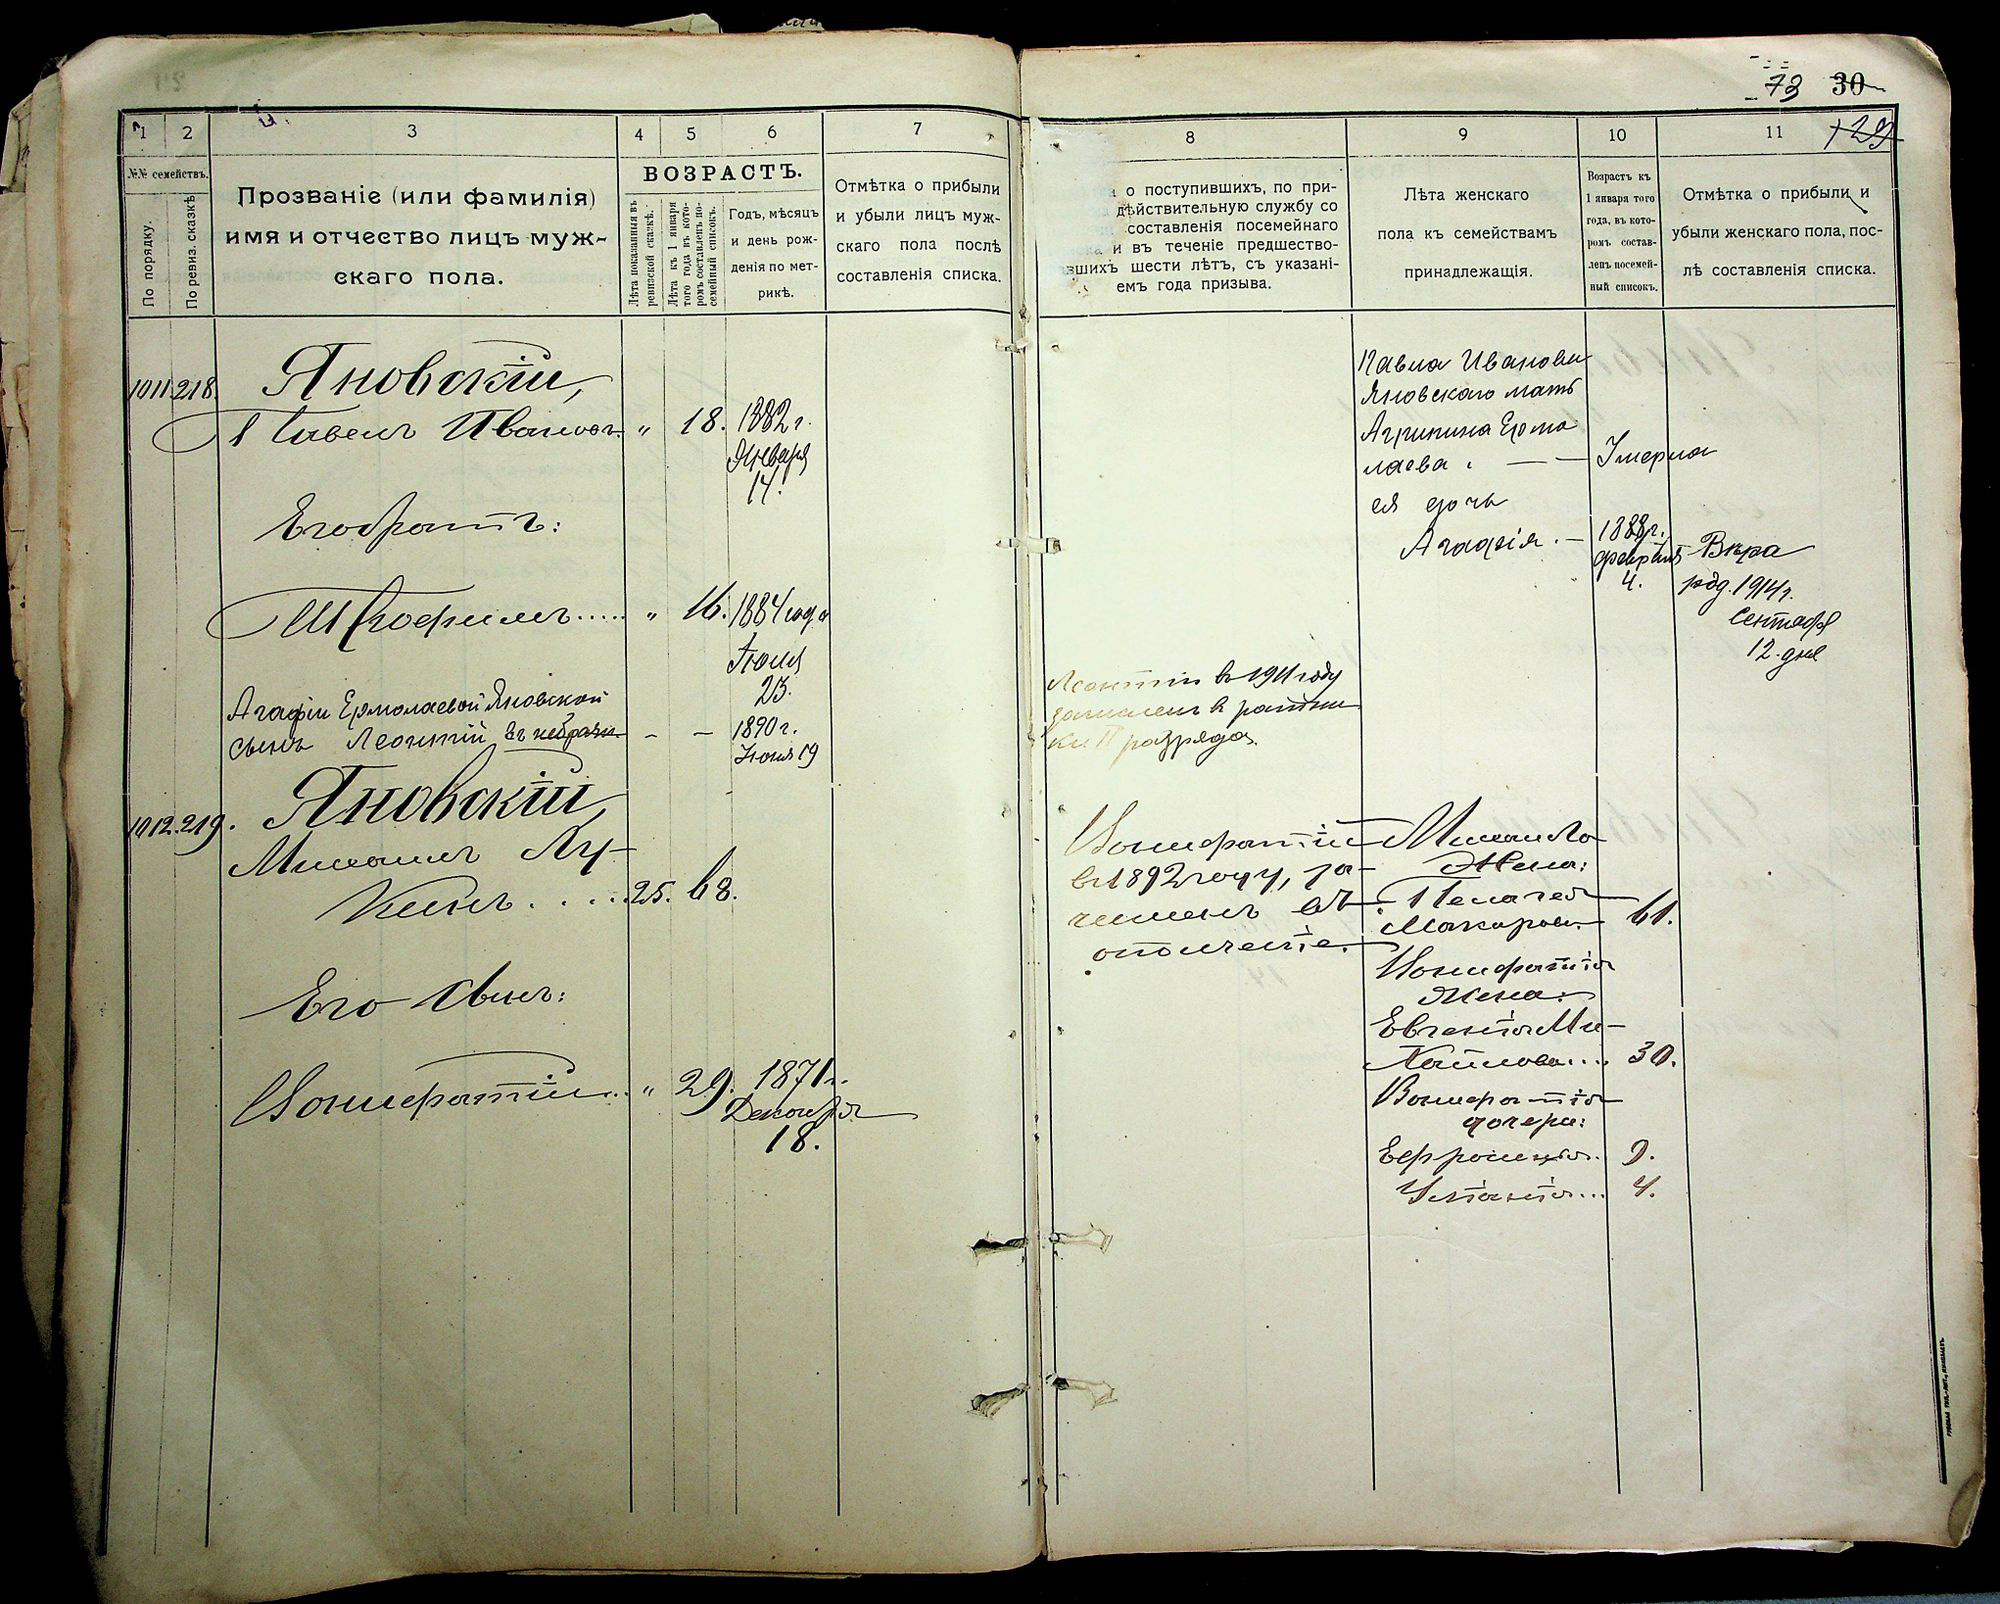 73 30
129
1 2 3 4 5 6 7
№№ семействъ.
По порядку.
По ревиз. сказкѣ
Прозваніе (или фамилія)
имя и отчество лицъ муж-
скаго пола.
ВОЗРАСТЪ.
Лѣта показанныя въ
ревизской сказкѣ.
Лѣта къ 1 января
того года въ кото-
ромъ составленъ по-
семейный списокъ.
Годъ, мѣсяцъ
и день рож-
денія по мет-
рикѣ.
Отмѣтка о прибыли
и убыли лицъ муж-
скаго пола послѣ
составленія списка.
1011. 218. Яновскій,
Павелъ Ивановъ. " 18. 1882 г.
Января
14.
Его братъ:
Трофимъ..... " 16. 1884 года
Іюля
23.
Агафіи Ермолаевой Яновской
сынъ Леонтій – – 1890 г.
Іюня 19
1012. 219. Яновскій,
Михаилъ Лу-
кинъ.... 25. 68.
Его сынъ:
Вонифатій.. " 29. 1871 г.
Декабря
18.
8 9 10 11
о поступившихъ, по при-
дѣйствительную службу со
составленія посемейнаго
и въ теченіе предшество-
вшихъ шести лѣтъ, съ указані-
емъ года призыва.
Лѣта женскаго
пола къ семействамъ
принадлежащія.
Возрастъ къ
1 января того
года, въ кото-
ромъ состав-
ленъ посемей-
ный списокъ.
Отмѣтка о прибыли и
убыли женскаго пола, пос-
лѣ составленія списка.
Павла Иванови
Яновскаго мать
Агрипина Ермо
лаева. – – Умерла
ея дочь
Агафія. – 1888 г.
февраля
4.
Вѣра
род. 1914 г.
Сентября
12 дня
Леонтій въ 1911 году
зачисленъ в ратни
ки II разряда.
Вонифатій
въ 1892 году, за-
численъ въ
ополченіе.
Михаила
Жена:
Пелагея
Макарова. 61.
Вонифатія
Жена:
Евгенія Ми-
хайлова... 30.
Вонифатія
дочери:
Ефросинія.. 9.
Уліанія... 4.